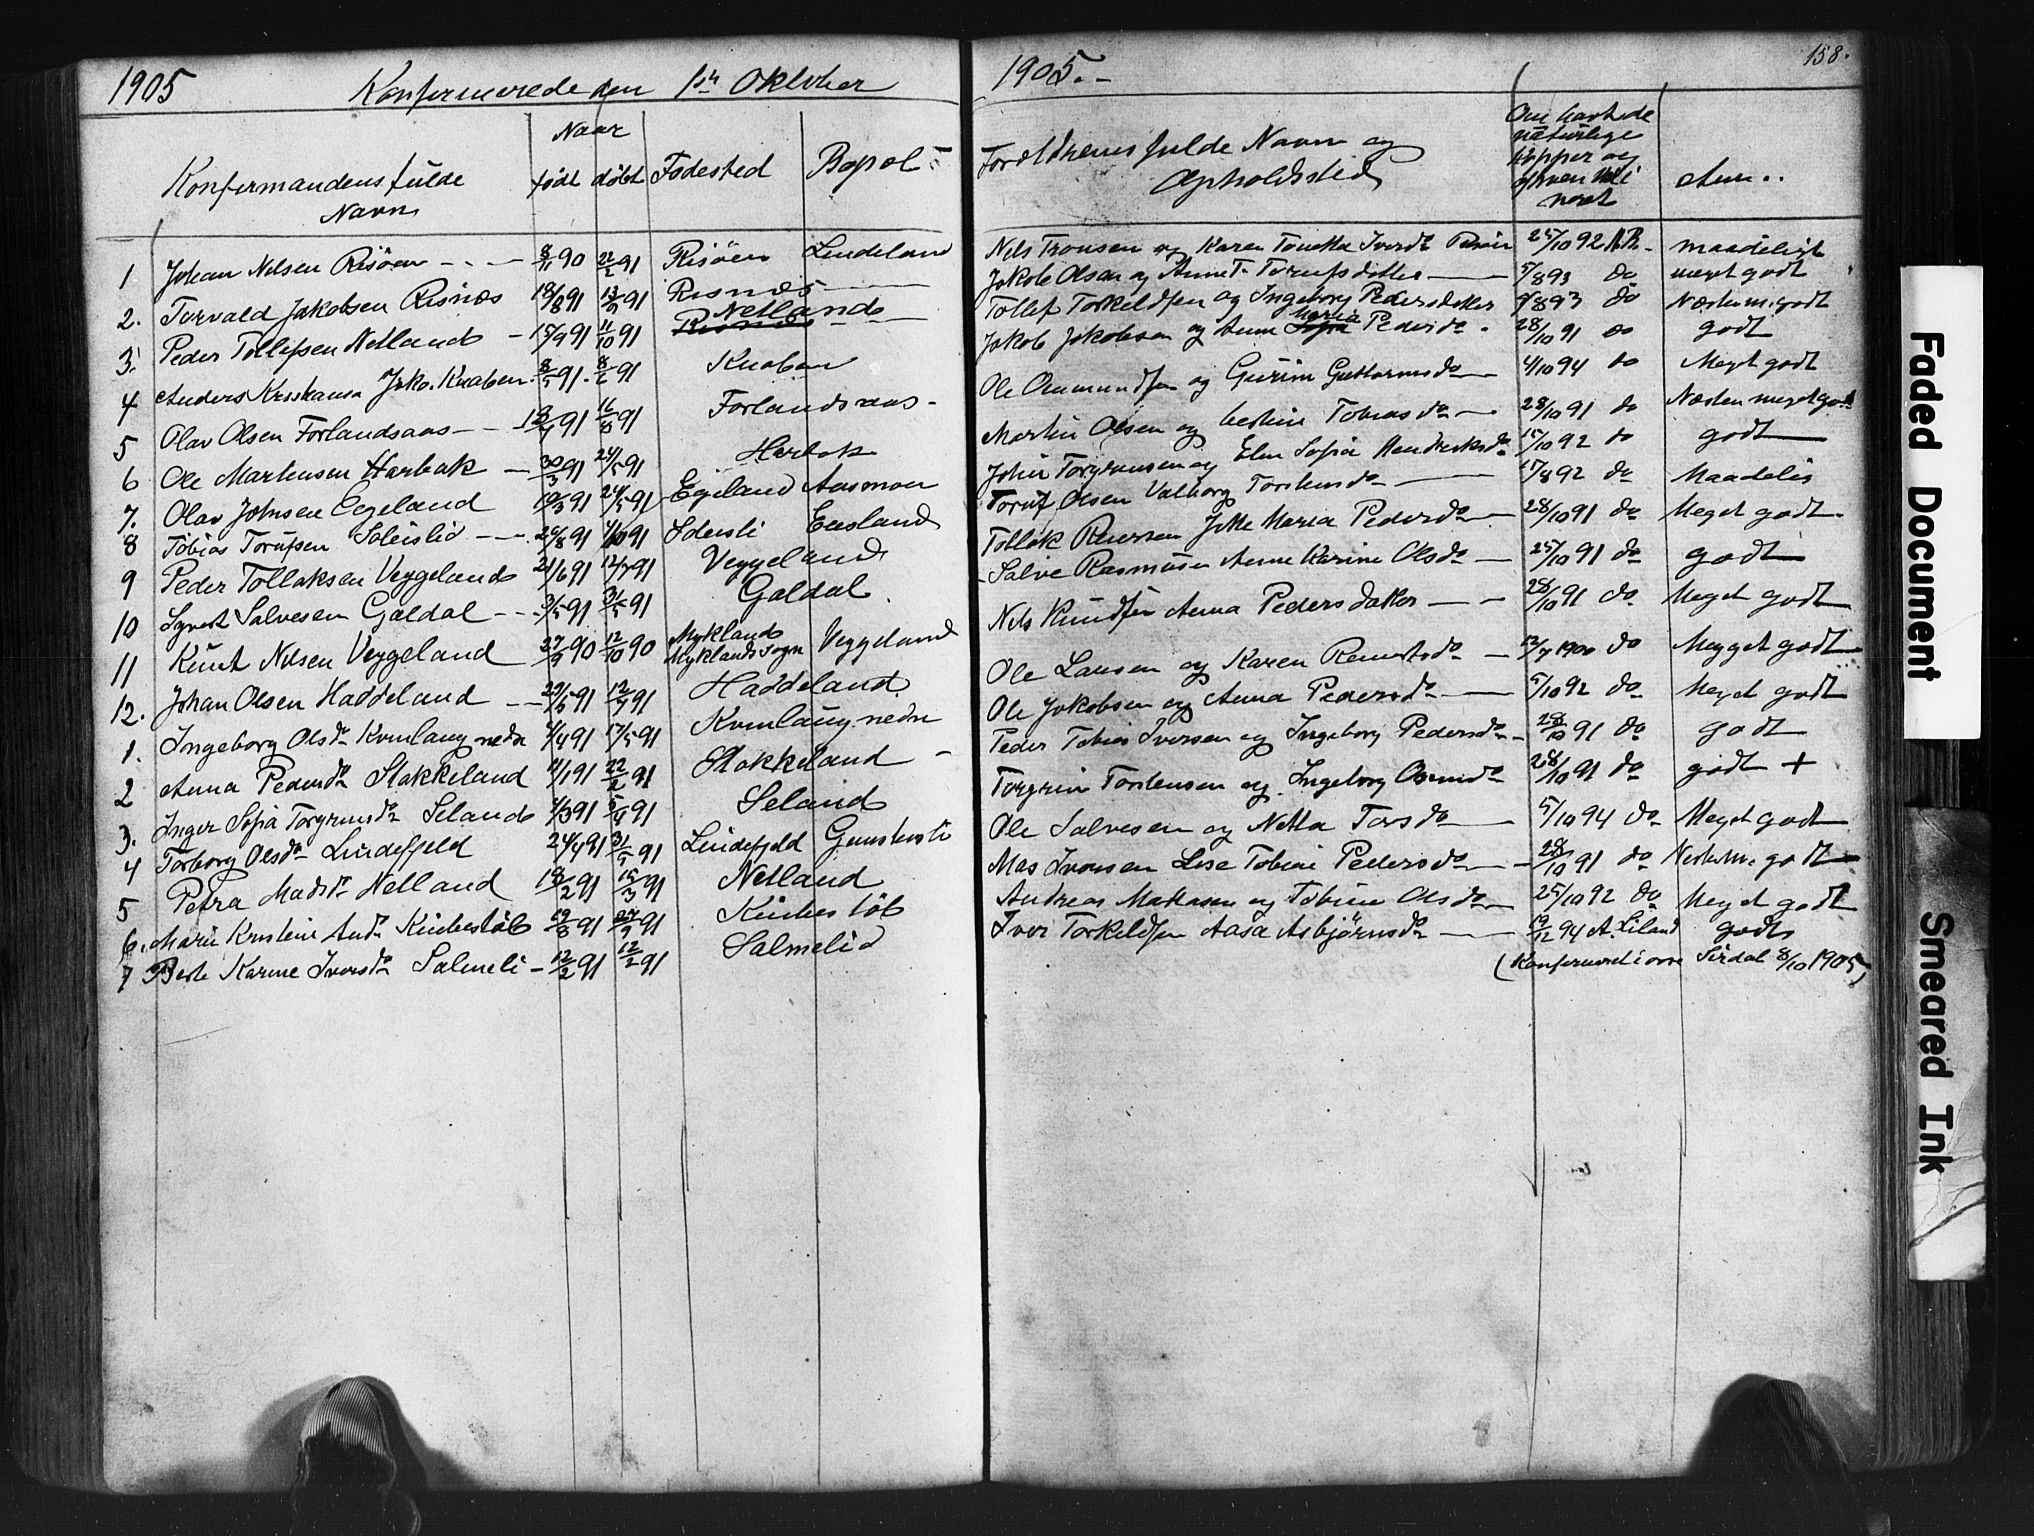 1905 Konfirmerede den 1ste Oktober
Naar
Konfirmandens fulde født døbt Fødested Bopæl
Navn
1 Johan Nilsen Risöen 8/11 90 22/2 91 Risöen Lindeland
2. Torvald Jakobsen Risnes 18/8 91 13/9 91 Risnes
3. Peder Tollefsen Netland 15/9 91 11/10 91 Netland
4 Anders Kristiansa Jako. Knaben 8/5 91 8/6 91 Knaben
5 Olav Olsen Forlandsaas 13/7 91 16/8 91 Forlandsaas
6 Ole Martensen Harbak 30/3 91 24/5 91 Harbak
7. Olav Johnsen Eegeland 10/3 91 24/5 91 Egeland Aasmoen
8 Tobias Torufsen Soleislid 24/8 91 4/10 91 Eiesland
9 Peder Tollaksen Veggeland 21/6 91 12/7 91 Veggeland
10 Syvert Salvesen Galdal 3/5 91 31/5 91 Galdal
11 Knut Nilsen Veggeland 27/9 90 12/10 90 Mykland Myklands sogn Veggeland
12. Johan Olsen Haddeland 29/5 91 12/7 91 Haddeland
1. Ingeborg Olsdr Kvinlaug nedre 4/4 91 17/5 91 Kvinlaug nedre
2 Anna Pedersdr Stakkeland 21/1 91 22/2 91 Stakkeland
3. Inger Sofia Torgrimsdr Seland 1/3 91 5/4 91 Seland
4 Torborg Olsdr Lindefjeld 24/4 91 31/5 91 Lindefjeld
5 Petra Madsdr Netland 18/2 91 15/3 91 Netland
6. Marie Kristine Andr Kinbestøl 19/8 91 27/9 91 Kinbestøl
7 Berte Karine Iversdr Salmeli 12/2 91 12/2 91 Salmelid
1905.- 158.
Forældrenes fulde Navn og
Opholdssted
Om havt de
naturlige
Kopper og
naar vacci
neret
Anm..
Nils Tronsen og Karen Tonetta Iversdr Risöen 25/10 92 maadeligt
Jakob Olsen og Anne T. Torufsdatter 5/8 93 do meget godt
Tollef Torkeldsen og Ingeborg Pedersdatter 9/8 93 do Næsten m. godt
Jakob Jakobsen og Anne Maria Pedersdr. 28/10 91 do godt
Ole Ommundsen og Gurine Guttormsdr 4/10 94 do Meget godt
Martin Olsen og Bertine Tobiasdr 28/10 91 do Næsten meget godt
John Torgrimsen og Elen Sofia Hendriksdr 15/10 92 do godt
Toruf Olsen Valborg Torstensdr 17/8 92 do Maadelig
Tollak Reiersen Jette Maria Pedersdr 28/10 91 do Meget godt
Salve Rasmusen Anne Karine Olsdr 25/10 91 do godt
Nils Knudsen Anna Pedersdatter 28/10 91 do Meget godt
Ole Larsen og Karen Reinertsdr 12/7 1900 do Megget godt
Ole Jakobsen og Anna Pedersdr 5/10 92 do Meget godt
Peder Tobias Iversen og Ingeborg Pedersdr 28/10 91 do godt
Torgrim Torstensen og Ingeborg Osmundsdr 28/10 91 do godt +
Ole Salvesen og Netta Torsdr 5/10 94 do Meget godt
Mas Ivorsen Lise Tobine Pedersdr 28/10 91 do Nesten m. godt
Andreas Mattasen og Tobine Olsdr 25/10 92 do Meget godt
Iver Torkeldsen Aasa Asbjørnsdr 19/12 94 A. Liland godt
(Konfirmeret i øvre Sirdal 8/10 1905)
Faded Document
Smeared Ink